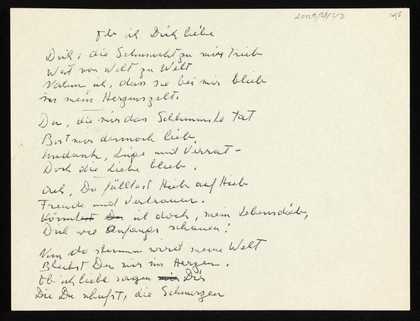 Ob ich Dich liebe
Dich, die Sehnsucht zu mir trieb
Weit von Welt zu Welt
Nahm ich, dass sie bei mir blieb
in mein Herzenszelt.
Du, die mir das Schlimmste tat
Bist mir dennoch lieb,
Undank, Lüge und Verrat –
Doch die Liebe blieb.
Ach, Du fälltest Hieb auf Hieb
Freude und Vertrauen.
Könnt ich doch, mein Lebensdieb,
Dich wie Anfangs schauen!
Nun da stumm wird meine Welt
Bleibst Du mir im Herzen.
Ob ich liebe sagen Dir
Die Du schufst, die Schmerzen